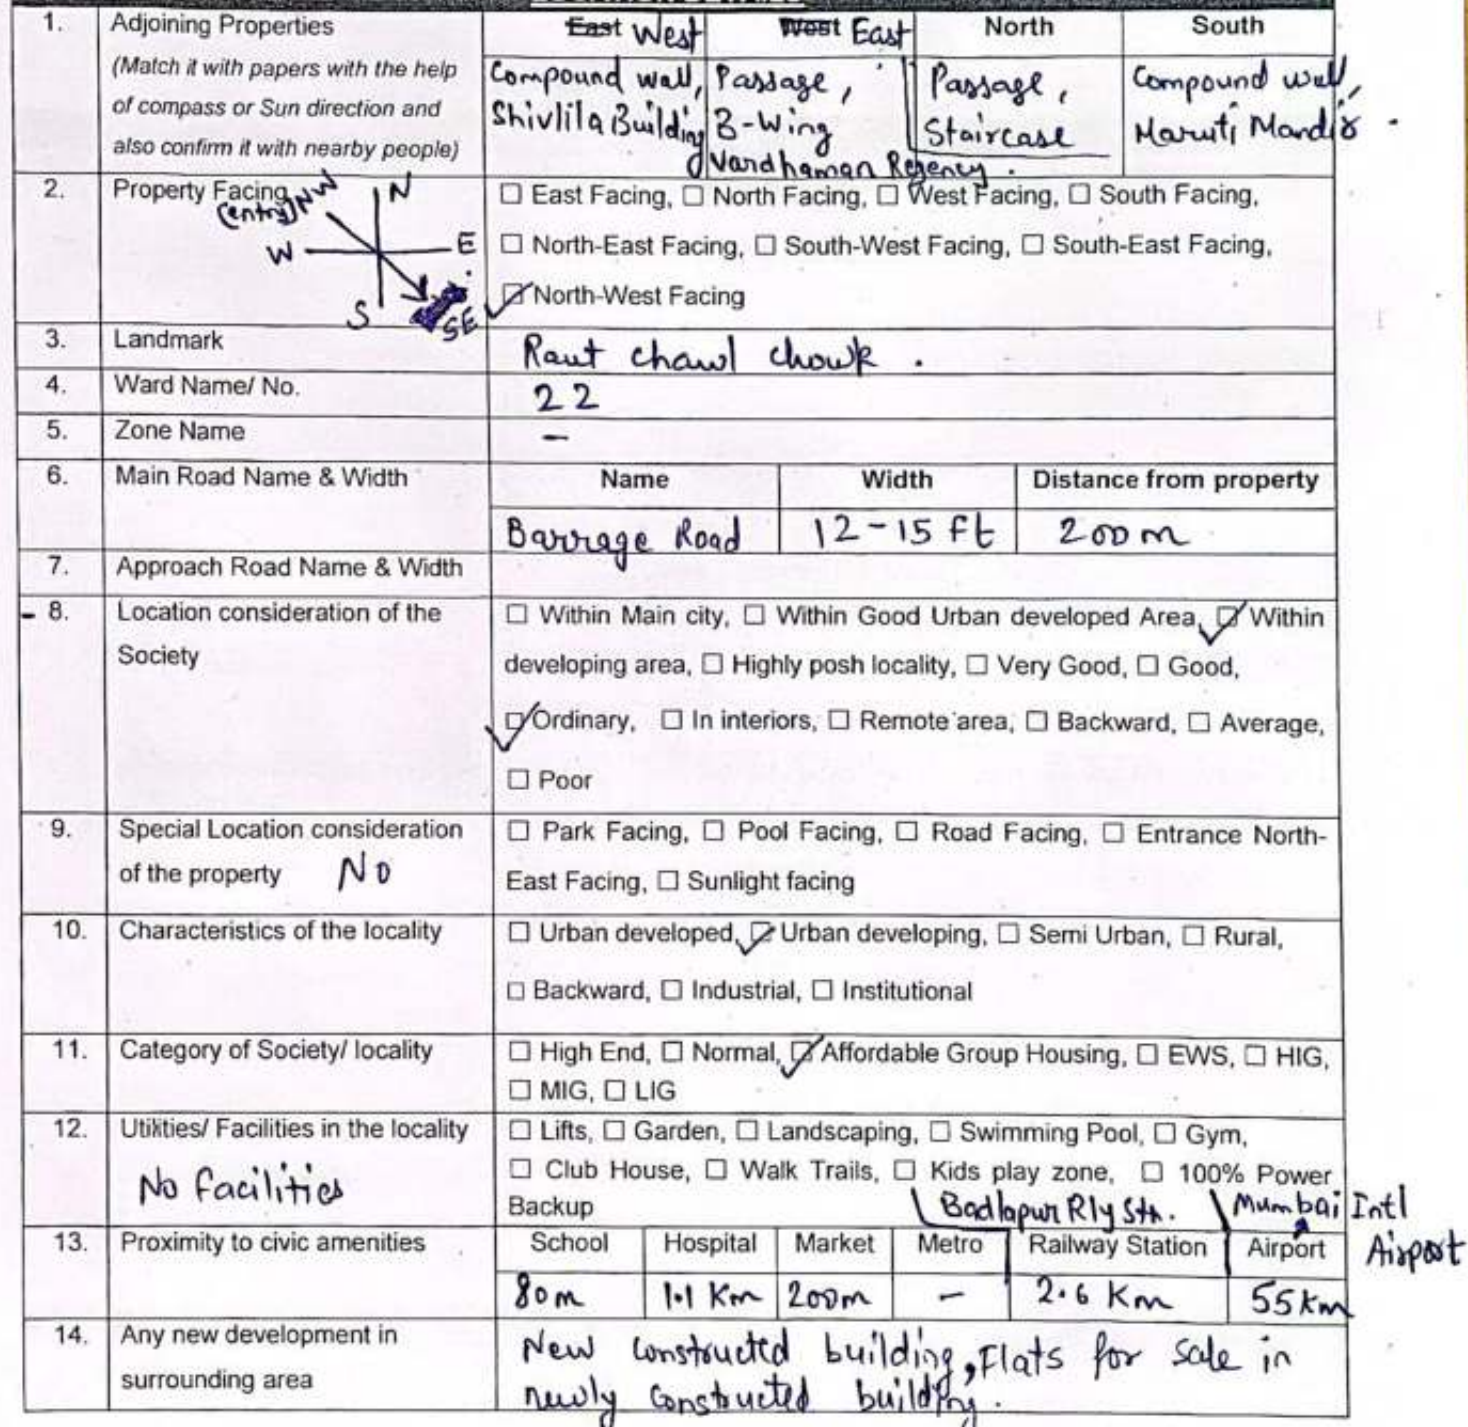 1. Adjoining Properties East West West East North South
(Match it with papers with the help
of compass or Sun direction and
also confirm it with nearby people)
Compound wall, Passage, Passage, Compound wall,
Shivlila Building B-Wing Staircase Maruti Mandir.
Vardhaman Regency.
2. Property Facing
(entry) NW N
W E
S SE
☐ East Facing, ☐ North Facing, ☐ West Facing, ☐ South Facing,
☐ North-East Facing, ☐ South-West Facing, ☐ South-East Facing,
☑ North-West Facing
3. Landmark Raut chawl chowk.
4. Ward Name/ No. 22
5. Zone Name -
6. Main Road Name & Width Name Width Distance from property
Barrage Road 12-15 ft 200m
7. Approach Road Name & Width
- 8. Location consideration of the
Society
☐ Within Main city, ☐ Within Good Urban developed Area, ☑ Within
developing area, ☐ Highly posh locality, ☐ Very Good, ☐ Good,
☑ Ordinary, ☐ In interiors, ☐ Remote area, ☐ Backward, ☐ Average,
☐ Poor
9. Special Location consideration
of the property No
☐ Park Facing, ☐ Pool Facing, ☐ Road Facing, ☐ Entrance North-
East Facing, ☐ Sunlight facing
10. Characteristics of the locality
☐ Urban developed, ☑ Urban developing, ☐ Semi Urban, ☐ Rural,
☐ Backward, ☐ Industrial, ☐ Institutional
11. Category of Society/ locality
☐ High End, ☐ Normal, ☑ Affordable Group Housing, ☐ EWS, ☐ HIG,
☐ MIG, ☐ LIG
12. Utilities/ Facilities in the locality
No facilities
☐ Lifts, ☐ Garden, ☐ Landscaping, ☐ Swimming Pool, ☐ Gym,
☐ Club House, ☐ Walk Trails, ☐ Kids play zone, ☐ 100% Power
Backup Badlapur Rly Stn. Mumbai Intl
Airport
13. Proximity to civic amenities School Hospital Market Metro Railway Station Airport
80m 1.1 Km 200m - 2.6 Km 55km
14. Any new development in
surrounding area
New constructed building, Flats for sale in
newly constructed building.